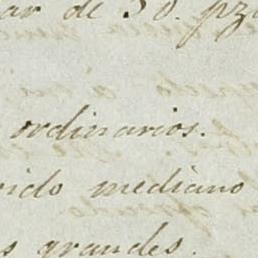 ar de 30. pza
ordinarios.
rido mediano
s grandes.